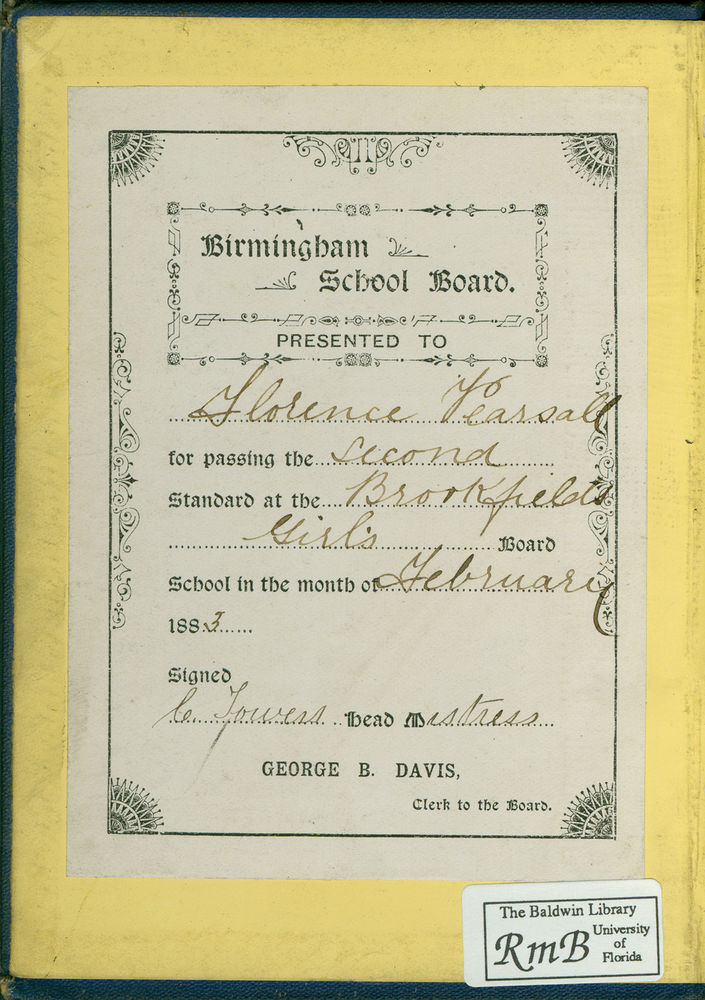 Birmingham
School Board.
PRESENTED TO
Florence Pearsall
for passing the second
Standard at the Brookfields
Girl's Board
School in the month of February
1883
Signed
C. Towers Head Mistress
GEORGE B. DAVIS,
Clerk to the Board.
The Baldwin Library
RmB University
of
Florida